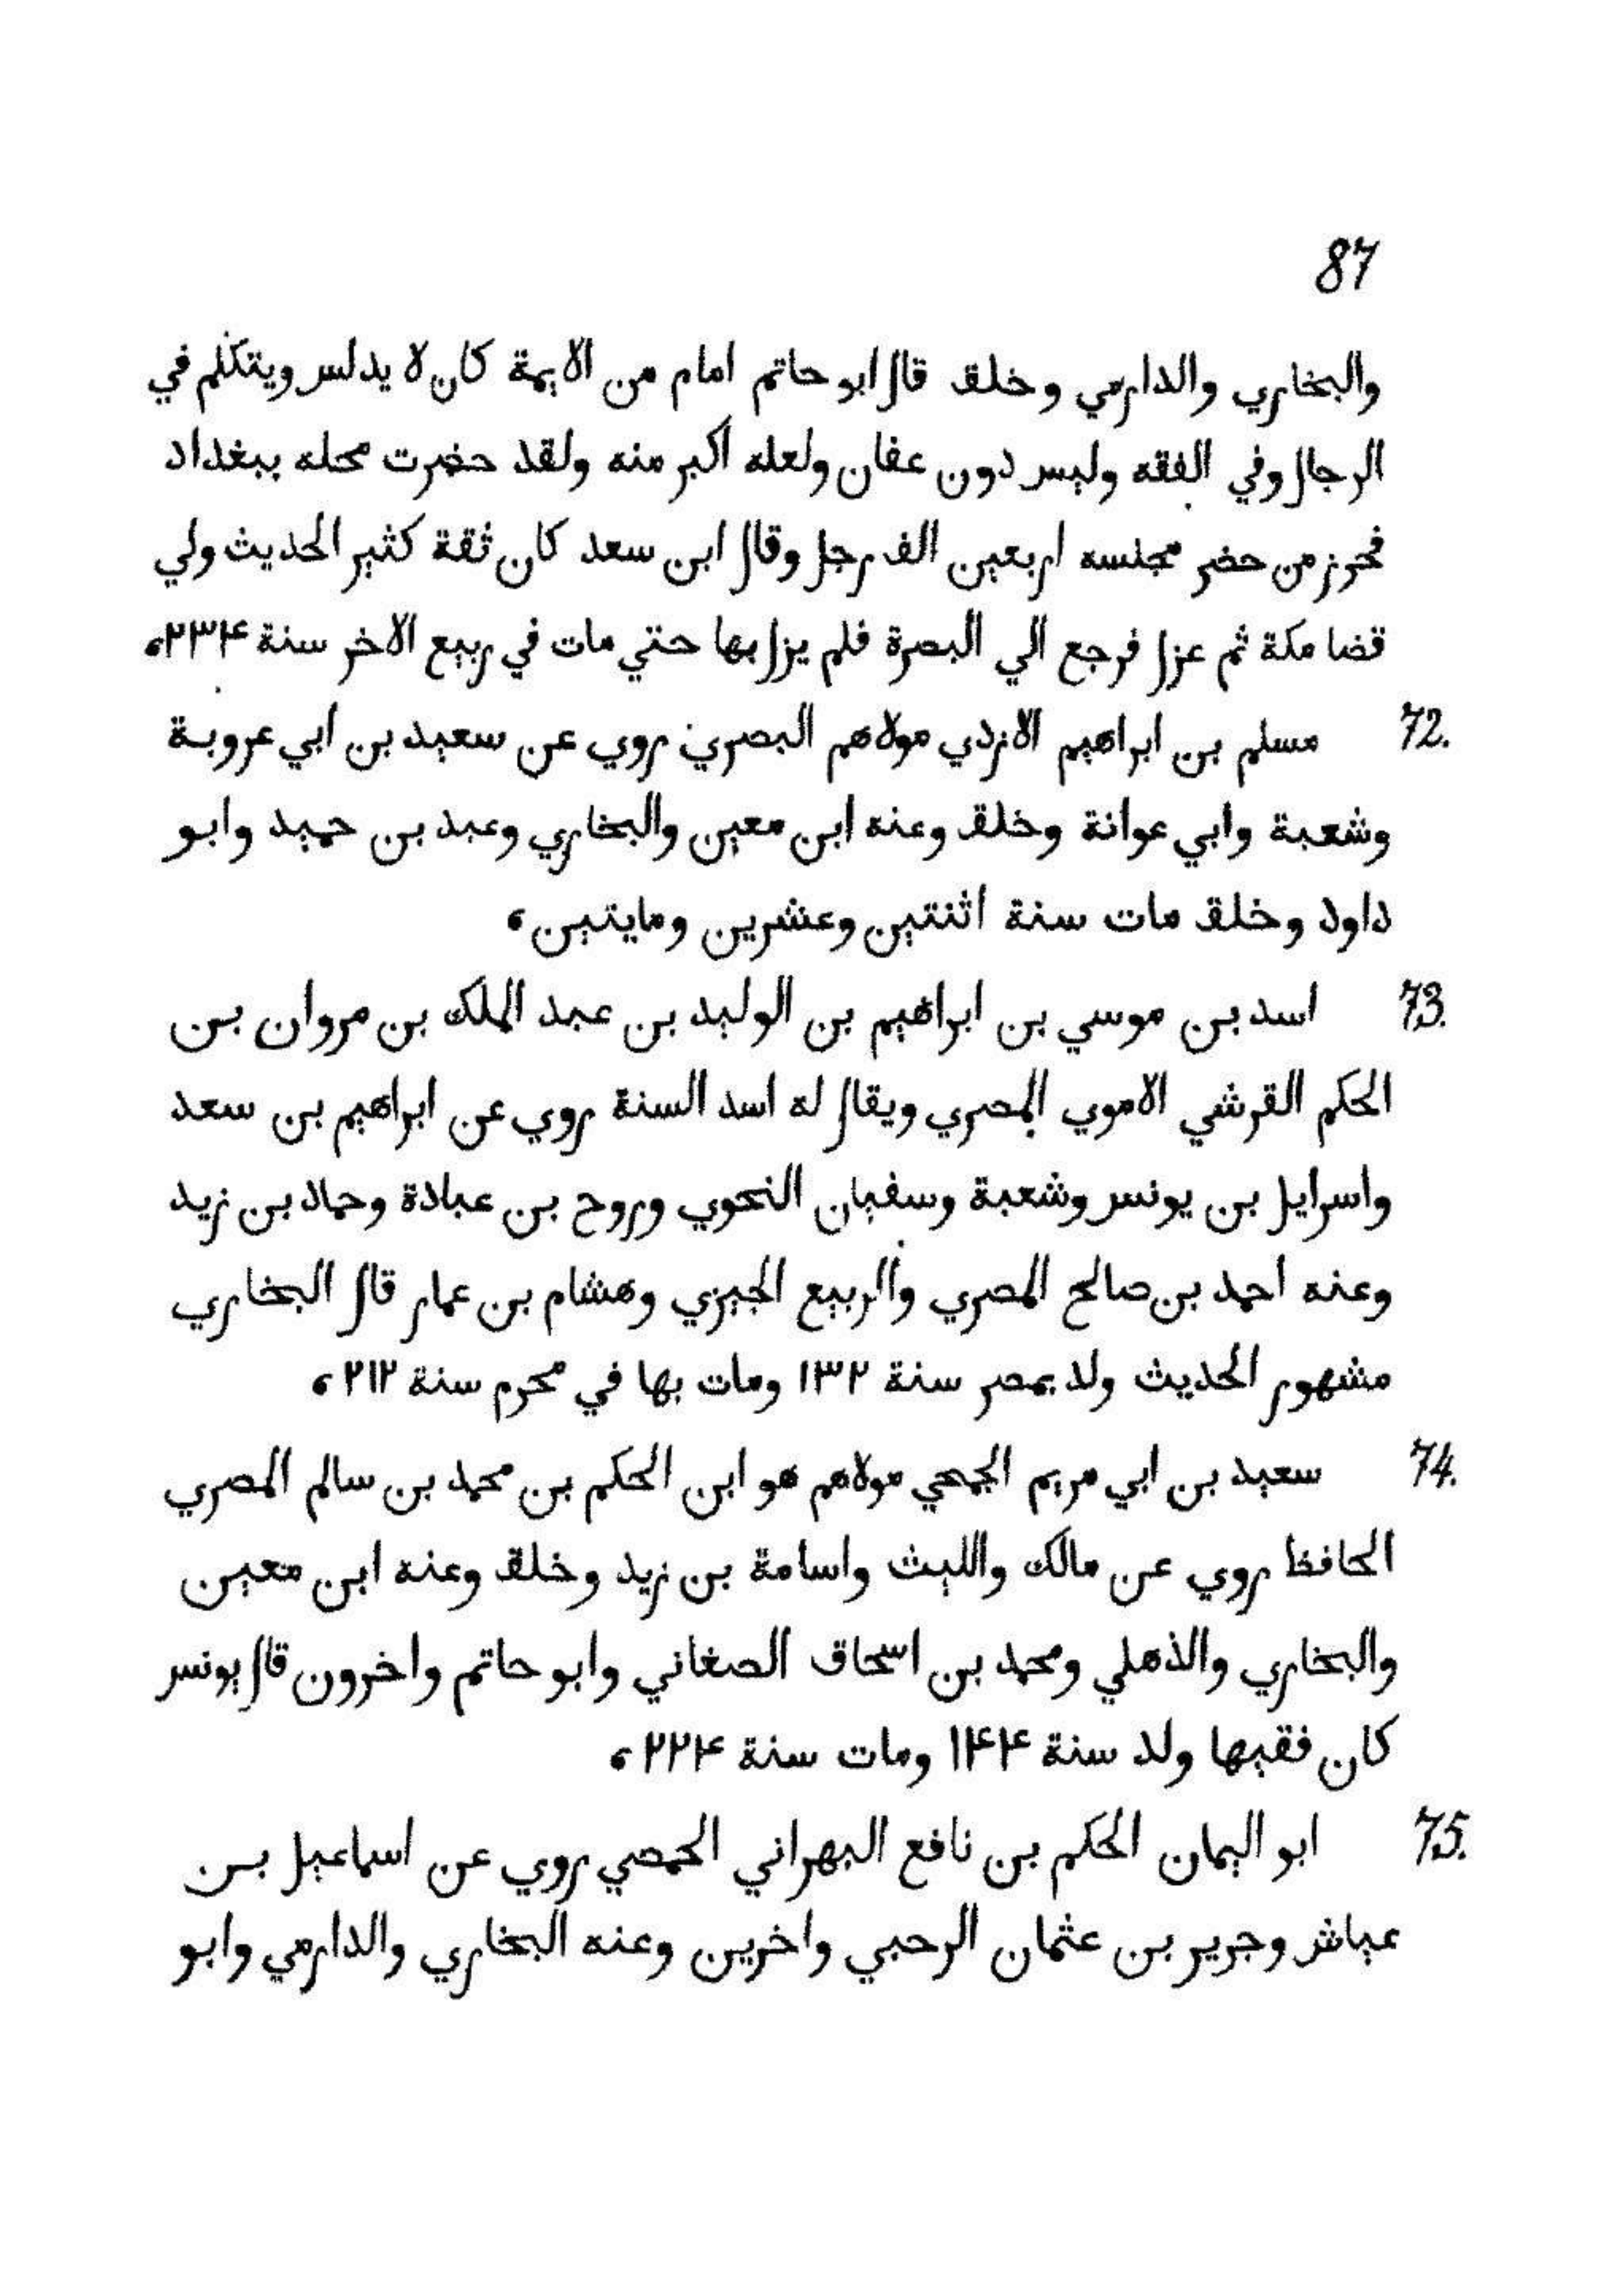 87
والبخاري والدارمي وخلق قال ابو حاتم امام من الايمة كان لا يدلس ويتكلم في
الرجال وفي الفقه وليس دون عفان ولعله اكبر منه ولقد حضرت محله ببغداد
فحرز من حضر مجلسه اربعين الف رجل وقال ابن سعد كان ثقة كثير الحديث ولي
قضا مكة ثم عزل فرجع الي البصرة فلم يزل بها حتي مات في ربيع الاخر سنة ٢٣۴،
72. مسلم بن ابراهيم الازدي مولاهم البصري روي عن سعيد بن ابي عروبة
وشعبة وابي عوانة وخلق وعنه ابن معين والبخاري وعبد بن حميد وابو
داود وخلق مات سنة اثنتين وعشرين ومايتين،
73. اسد بن موسي بن ابراهيم بن الوليد بن عبد الملك بن مروان بن
الحكم القرشي الاموي المصري ويقال له اسد السنة روي عن ابراهيم بن سعد
واسرايل بن يونس وشعبة وسفيان النحوي وروح بن عبادة وحماد بن زيد
وعنه احمد بن صالح المصري والربيع الجيزي وهشام بن عمار قال البخاري
مشهور الحديث ولد بمصر سنة ١٣٢ ومات بها في محرم سنة ٢١٢،
74. سعيد بن ابي مريم الجمحي مولاهم هو ابن الحكم بن محمد بن سالم المصري
الحافظ روي عن مالك والليث واسامة بن زيد وخلق وعنه ابن معين
والبخاري والذهلي ومحمد بن اسحاق الصغاني وابو حاتم واخرون قال يونس
كان فقيها ولد سنة ١۴۴ ومات سنة ٢٢۴،
75. ابو اليمان الحكم بن نافع البهراني الحمصي روي عن اسماعيل بن
عياش وجرير بن عثمان الرحبي واخرين وعنه البخاري والدارمي وابو